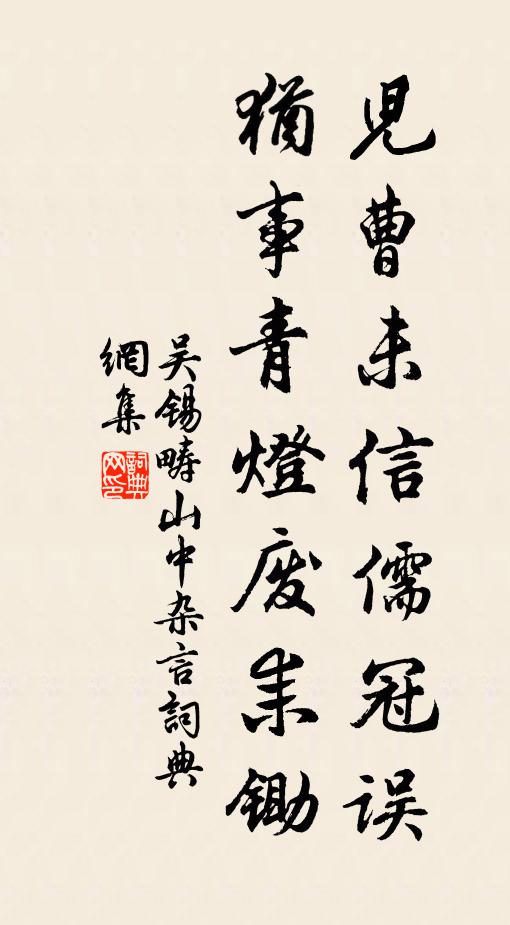 児曹未信儒冠误
猶事青燈废耒鋤
吴锡畴山中杂言詞典
網集
詞典网印